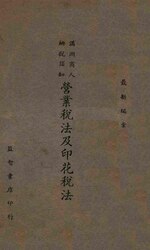 最新改正
滿洲商人
納稅須知
營業稅法及印花稅法
益智書店印行